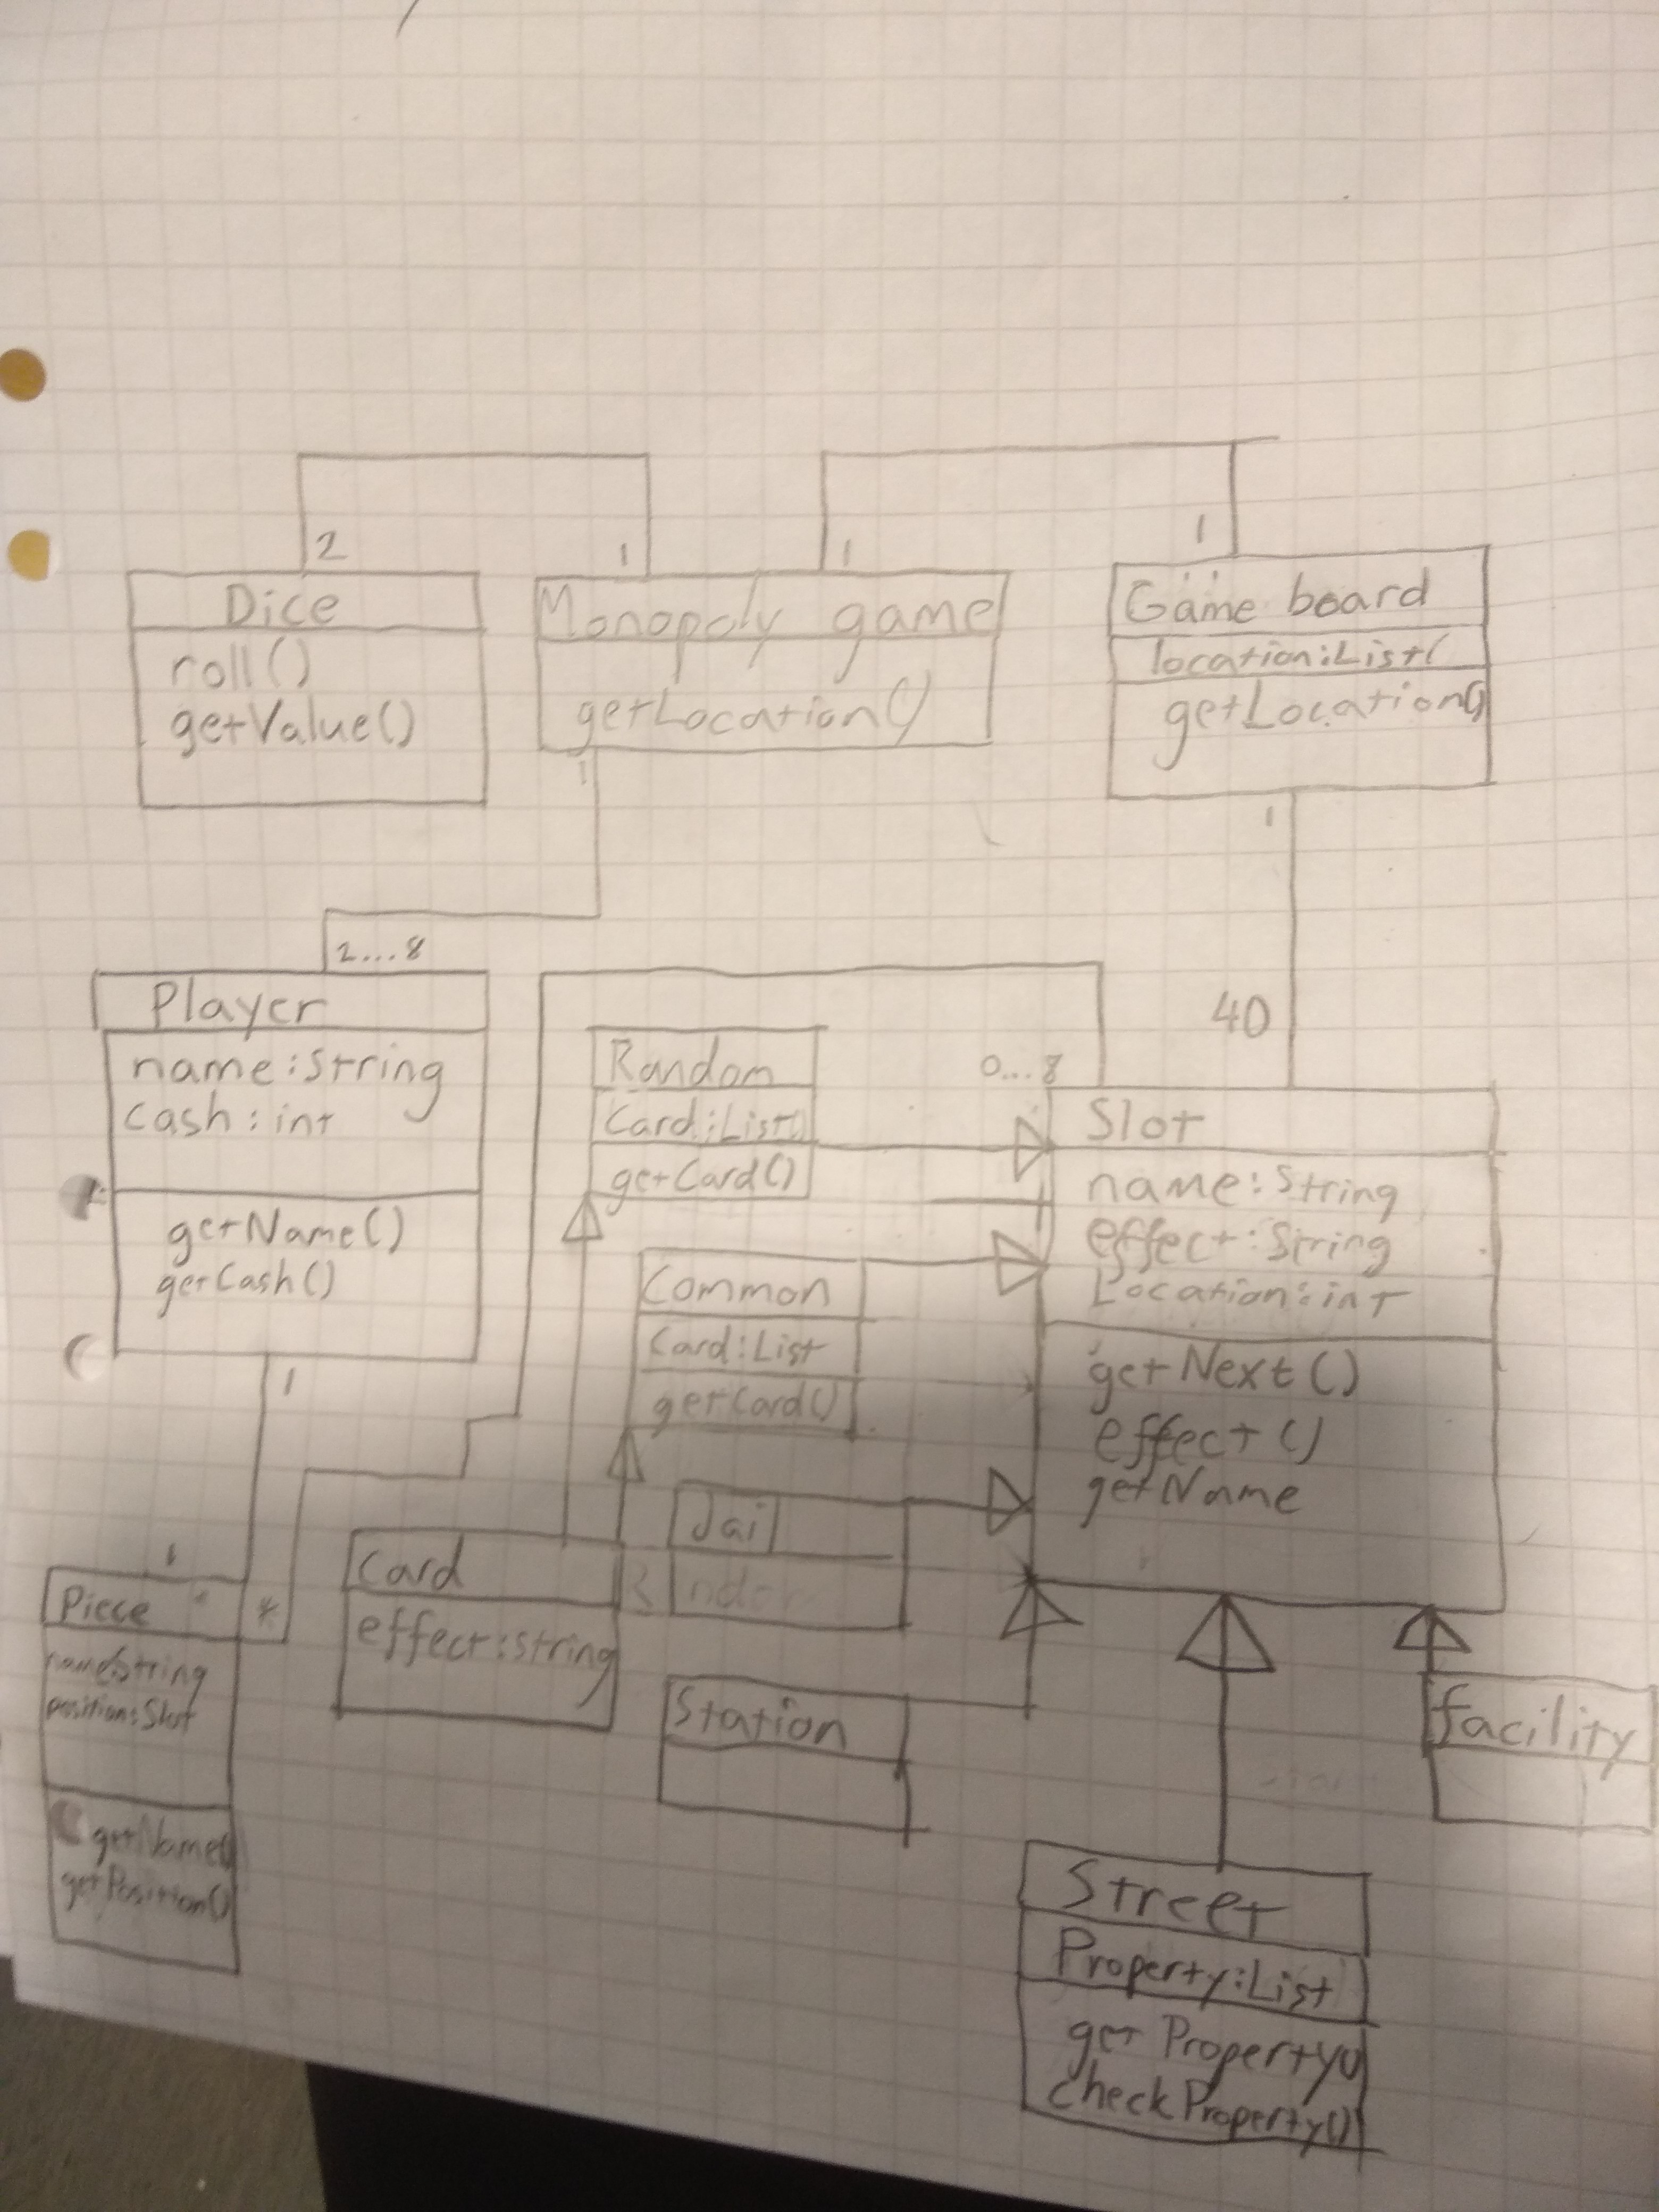 2
1
1
1
Dice
roll()
getValue()
Monopoly game
getLocation()
Game board
location:List(
getLocation()
1
1
2...8
40
Player
name:String
cash:int
getName()
getCash()
1
Random
Card:List()
getCard()
0...8
Slot
name:String
effect:String
Location:int
getNext()
effect()
getName
Common
Card:List
getCard()
Jail
1
Piece
*
name:String
position:Slot
getName()
getPosition()
Card
effect:String
Station
facility
Street
Property:List
getProperty()
checkProperty()